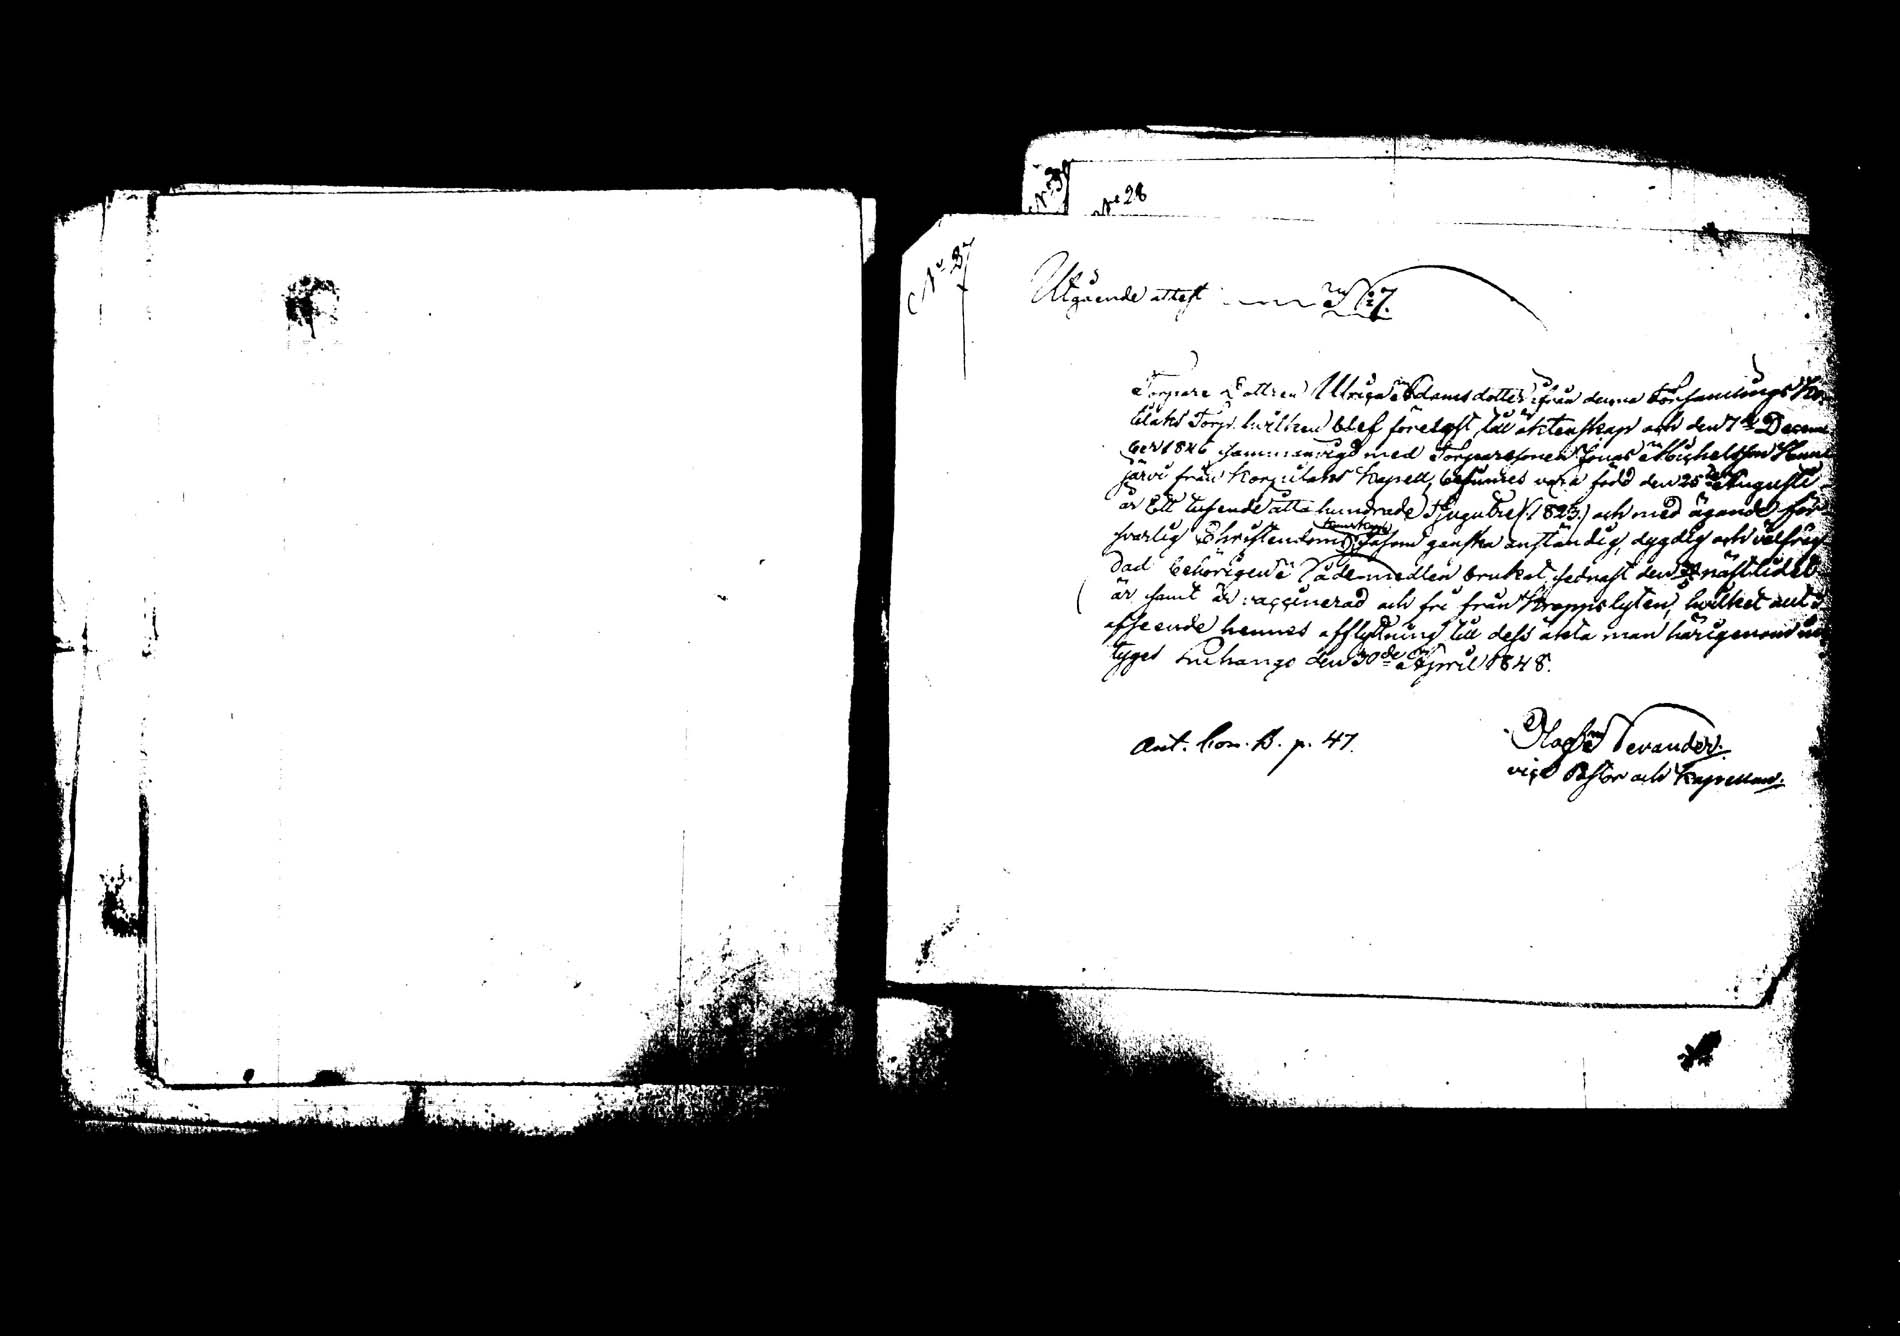 N:o 28
N:o 37
Utgående attest N:o 7.
Torpare Dottren Ulrica Adamsdotter ifrån denna Församlings
Torp. hvilken blef förelyst till äktenskap och den 7de Decem
ber 1846 sammanvigd med Torparesonen Jonas Michelsson
järvi från Korpilaks Kapell, befunnes vara född den 25de Augusti
år Ett tusende åtta hundrade tjugutre (1823.) och med ägande för
svarlig Christendoms kunskap, såsom ganska anständig, dygdig och välfräg
dad behörigen nådemedlen brukat, sednast den nästlidet
år samt är vaccinerad och fri från Kroppslyten, hvilket
afseende hennes afflyttning till dess äkta man härigenom
tyges Luhango den 30de April 1848.
Ant. Com. B. p. 47.
Olof Tevander.
vice Pastor och Kapellan.